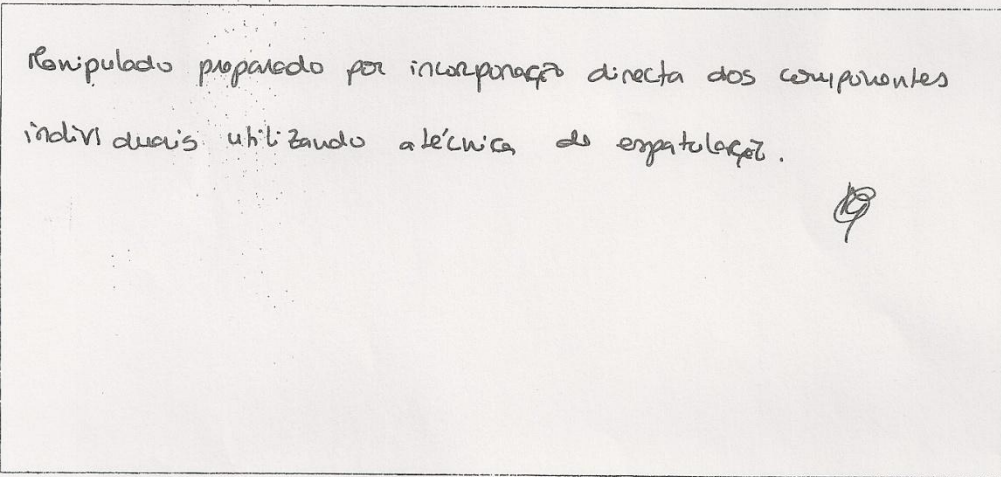 Manipulado preparado por incorporação directa dos componentes
individuais utilizando a técnica de espatulação.